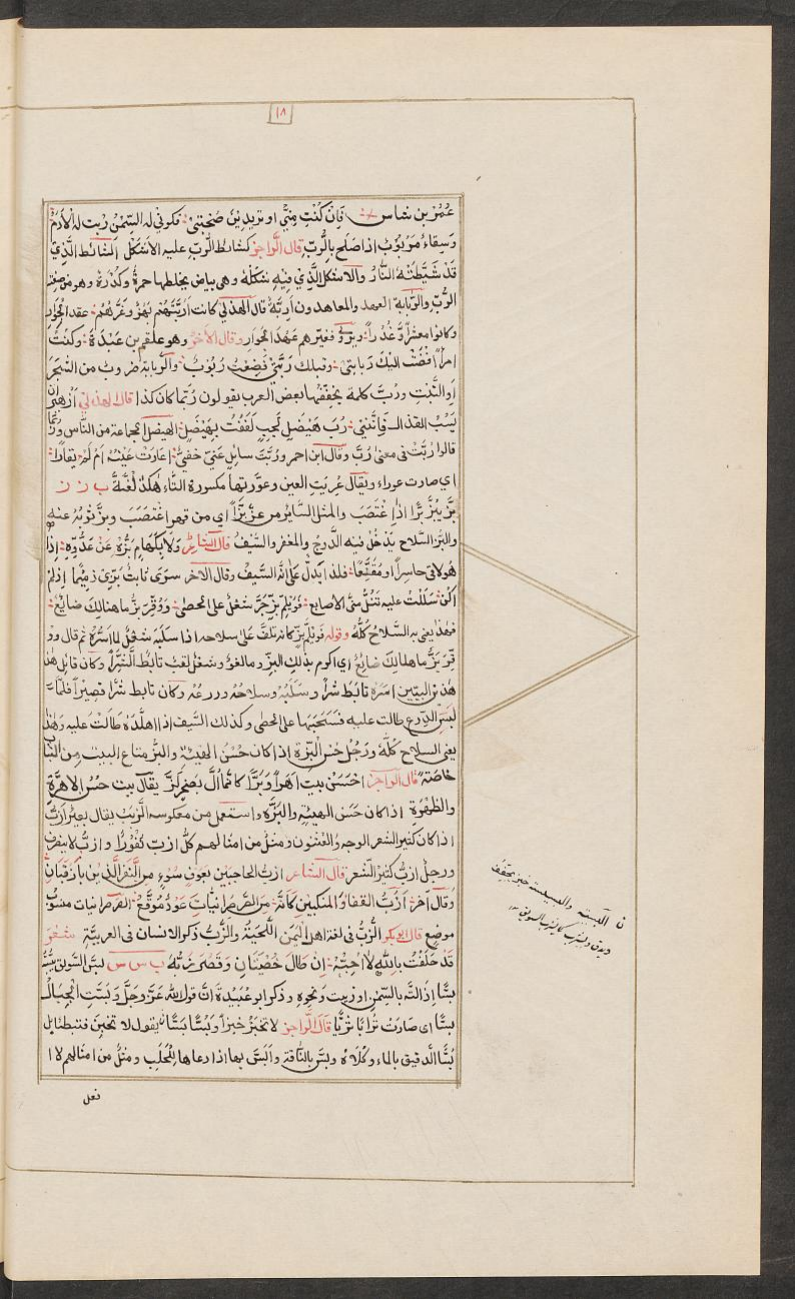 ١٨
عَمْرُ بن شاس فَإِنْ كُنْتِ مِنِّي او تريدِيْنَ صُحْبَتِيْ فكوني له السَّمْنُ رُبت له الْاَدَمُ
وَسِقاءٌ مَرْبُوْبٌ اذا صَلَح بالرُّبّ قال الرّاجز كشائط الرُّبّ عليه الاَشكَل الشائط الَّذِيْ
قَدْ شَيَّطَتْهُ النّارُ والاشكل الَّذِيْ فِيْهِ شُكْلَةٌ وهى بياض يخلطها حمرةٌ وكُدْرَةٌ وهو من صفة
الرُّبّ والرِّبَابة العهد والمعاهدون اَرِبَّةٌ قال الهذلى كانت اَرِبَّتَهُم بَهْزٌ وغَرَّهُمْ عقد الجِوار
وكانوا معشرًا غُدُرًا ويروى فغيرهم عَهْدُ الجوار وقال الآخر وهو علقمة بن عَبَدَة وكُنْتُ
امرأً اَفْضَتْ اليكَ رِبابتى وقبلك رَبَّتْنِيْ فَضِعْتُ رُبُوْبُ والرِّبابة ضروب من الشجر
اَوِ النَّبْت ورُبَّ كلمة يخفّفها بعض العرب يقولون رُبَما كان كذا قال الهذلى اَزُهَيْرُ اِنْ
يَشِبِ القذال فَاِنَّنِيْ رُبَ هَيْضَلٍ لَجِبٍ لَفَفْتُ بِهَيْضَلِ الهيضل الجماعة من النّاس ورُبَّما
قالوا رُبَّتَ فى معنى رُبَّ وقال ابن احمر ورُبَّتَ سائلٍ عَنِّي حَفِيٍّ اعَارَتْ عَيْنُهُ اَمْ لَمْ تِعَارَا
اى صارت عوراء ويقال عُرِيَتِ العين وعوّرتها مكسورة التَّاء هٰكذا لُغَةٌ ب ز ز
بَزَّ يَبُزُّ بَزًّا اِذَا اغْتَصَبَ والمثل السَّائر من عزَّ بَزَّ اى من قهر اغْتَصَبَ وبزَّ ثوبُهُ عنه
والبَزُّ السِّلاح يَدْخُل فيه الدِّرع والمغفر والسّيفُ قال الشاعر وَلَا بِكَهَامٍ بَزُّهُ عَنْ عَدُوِّهِ اِذَا
هُوَ لاقى حاسِرًا او مُقَنَّعَا فلذا يَدُلّ على اَنَّهُ السَّيفُ وقال الآخر سرى ثابتٌ بَزِّي ذميمًا اِذ لم
اَكُنْ سَلَلْتُ عليه شَلَّ مِنّى الأصابع فَوَيْلُمِّ بَزٍّ جَرَّ شَعْلٌ على الحصى وَوُقِّرَ بَزٌّ ما هنالك ضائِعُ
فهٰذا يعنى به السِّلاح كُلَّهُ وقوله فَوَيْلُمِّ بَزٍّ كانه تلهّف على سلاحه اذا سلبَهُ شَعْلٌ لما اَسَرَهُ ثم قال وو
قِّرَ بَزٌّ ما هنالك ضائِعُ اى اكرم بذٰلك البزّ وما لغو وشعلٌ لقب تابَّطَ الشَّرًّا وكان قائل هٰذا
هٰذين البيتين اسَرَه تابَّطَ شَرًّا وسَلَبَهُ وسلاحَهُ ودرعَهُ وكان تابط شرًّا قصيرًا فلمّا
لَبِسَ الدِّرعَ طالت عليه فسَحَبَها على الحصى وكذلك السَّيف اذا اقلّدَهُ طَالَتْ عليه وهذا
يعنى السلاح كُلَّهُ ورَجُلٌ حَسَنُ البَزَّة اذا كان حُسْنَ الهَيْئَةِ والبَزُّ متاع البيت مِن الثِّياب
خاصّةً قال الراجز احْسَنُ بيتٍ اَهَرًا وَبَزًّا كأنّما لُزَّ بصَخرٍ لَزَّا يقال بيت حَسَنُ الاهَرَةِ
والظَّهَرَةِ اذا كان حَسَن الهيئةِ والبِزَّة واستُعمل من معكوسه الزَّبَبُ يقال بعيرٌ اَزَبُّ
اذا كان كثير الشعر الوجه والعُثْنُون ومثل من امثالهم كلّ ازبّ نَفُوْرٌ وازبّ لا ينصرف
ورجلٌ ازبُّ كثيرُ الشَّعر قال الشاعر ازبُّ الحاجبين بعَوفِ سُوْءٍ من النَّفَرِ الَّذين بِأَزْقُبَانِ
وقال آخر اَزَبُّ القفا والمنكبينِ كَأنَّهُ مِنَ الصَّرصَرانِيَّاتِ عَوْدٌ مُوَقَّعُ الصرصرانيات منسوب
موضع قال ابو بكر الزُّبُّ فى لغة اهل اليَمَن اللِّحيَةُ والزُّبُّ ذكر الانسان فى العربيَّة شعر
قَدْ حَلَفْتُ بِاللّٰهِ لَا اُحِبُّهُ اِنْ طَالَ خُصْيَاهُ وَقَصُرَ زُبُّهُ ب س س بَسَّ السَّويق يَبُسُّهُ
بسًّا إذَا لتَّه بالسَّمن او زيت ونحوِه وذكر ابو عُبَيْدَة اَنَّ قول الله عَزَّ وَجَلَّ وَبُسَّتِ الْجِبَالُ
بسًّا اى صَارَتْ تُرَابًا تَرِبًا قال الرَّاجز لَا تَخْبِزَا خَبْزًا وَبُسَّا بَسَّا يقول لا تخبزا فتبطئا بل
بُسَّا الدَّقيق بالماء وكُلَاهُ وبسَّ بالنّاقة واَبَسَّ بها اذا دعاها لِلحَلَب ومثلٌ من امثالهم لا ا
فعل
ن البسيسة خبز يجفف
ويدق ويشرب كما يشرب السويق